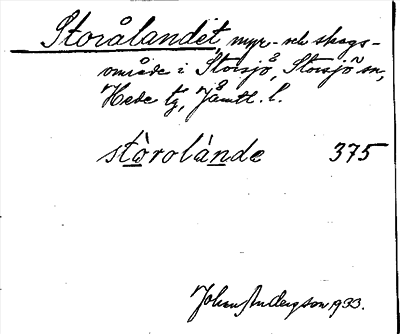 Storålandet, myr- och skogs-
område i Storsjö, Storsjö sn,
Hede tg, Jämtl. l.
stòrolànde 375
Johan Anderson 1933.